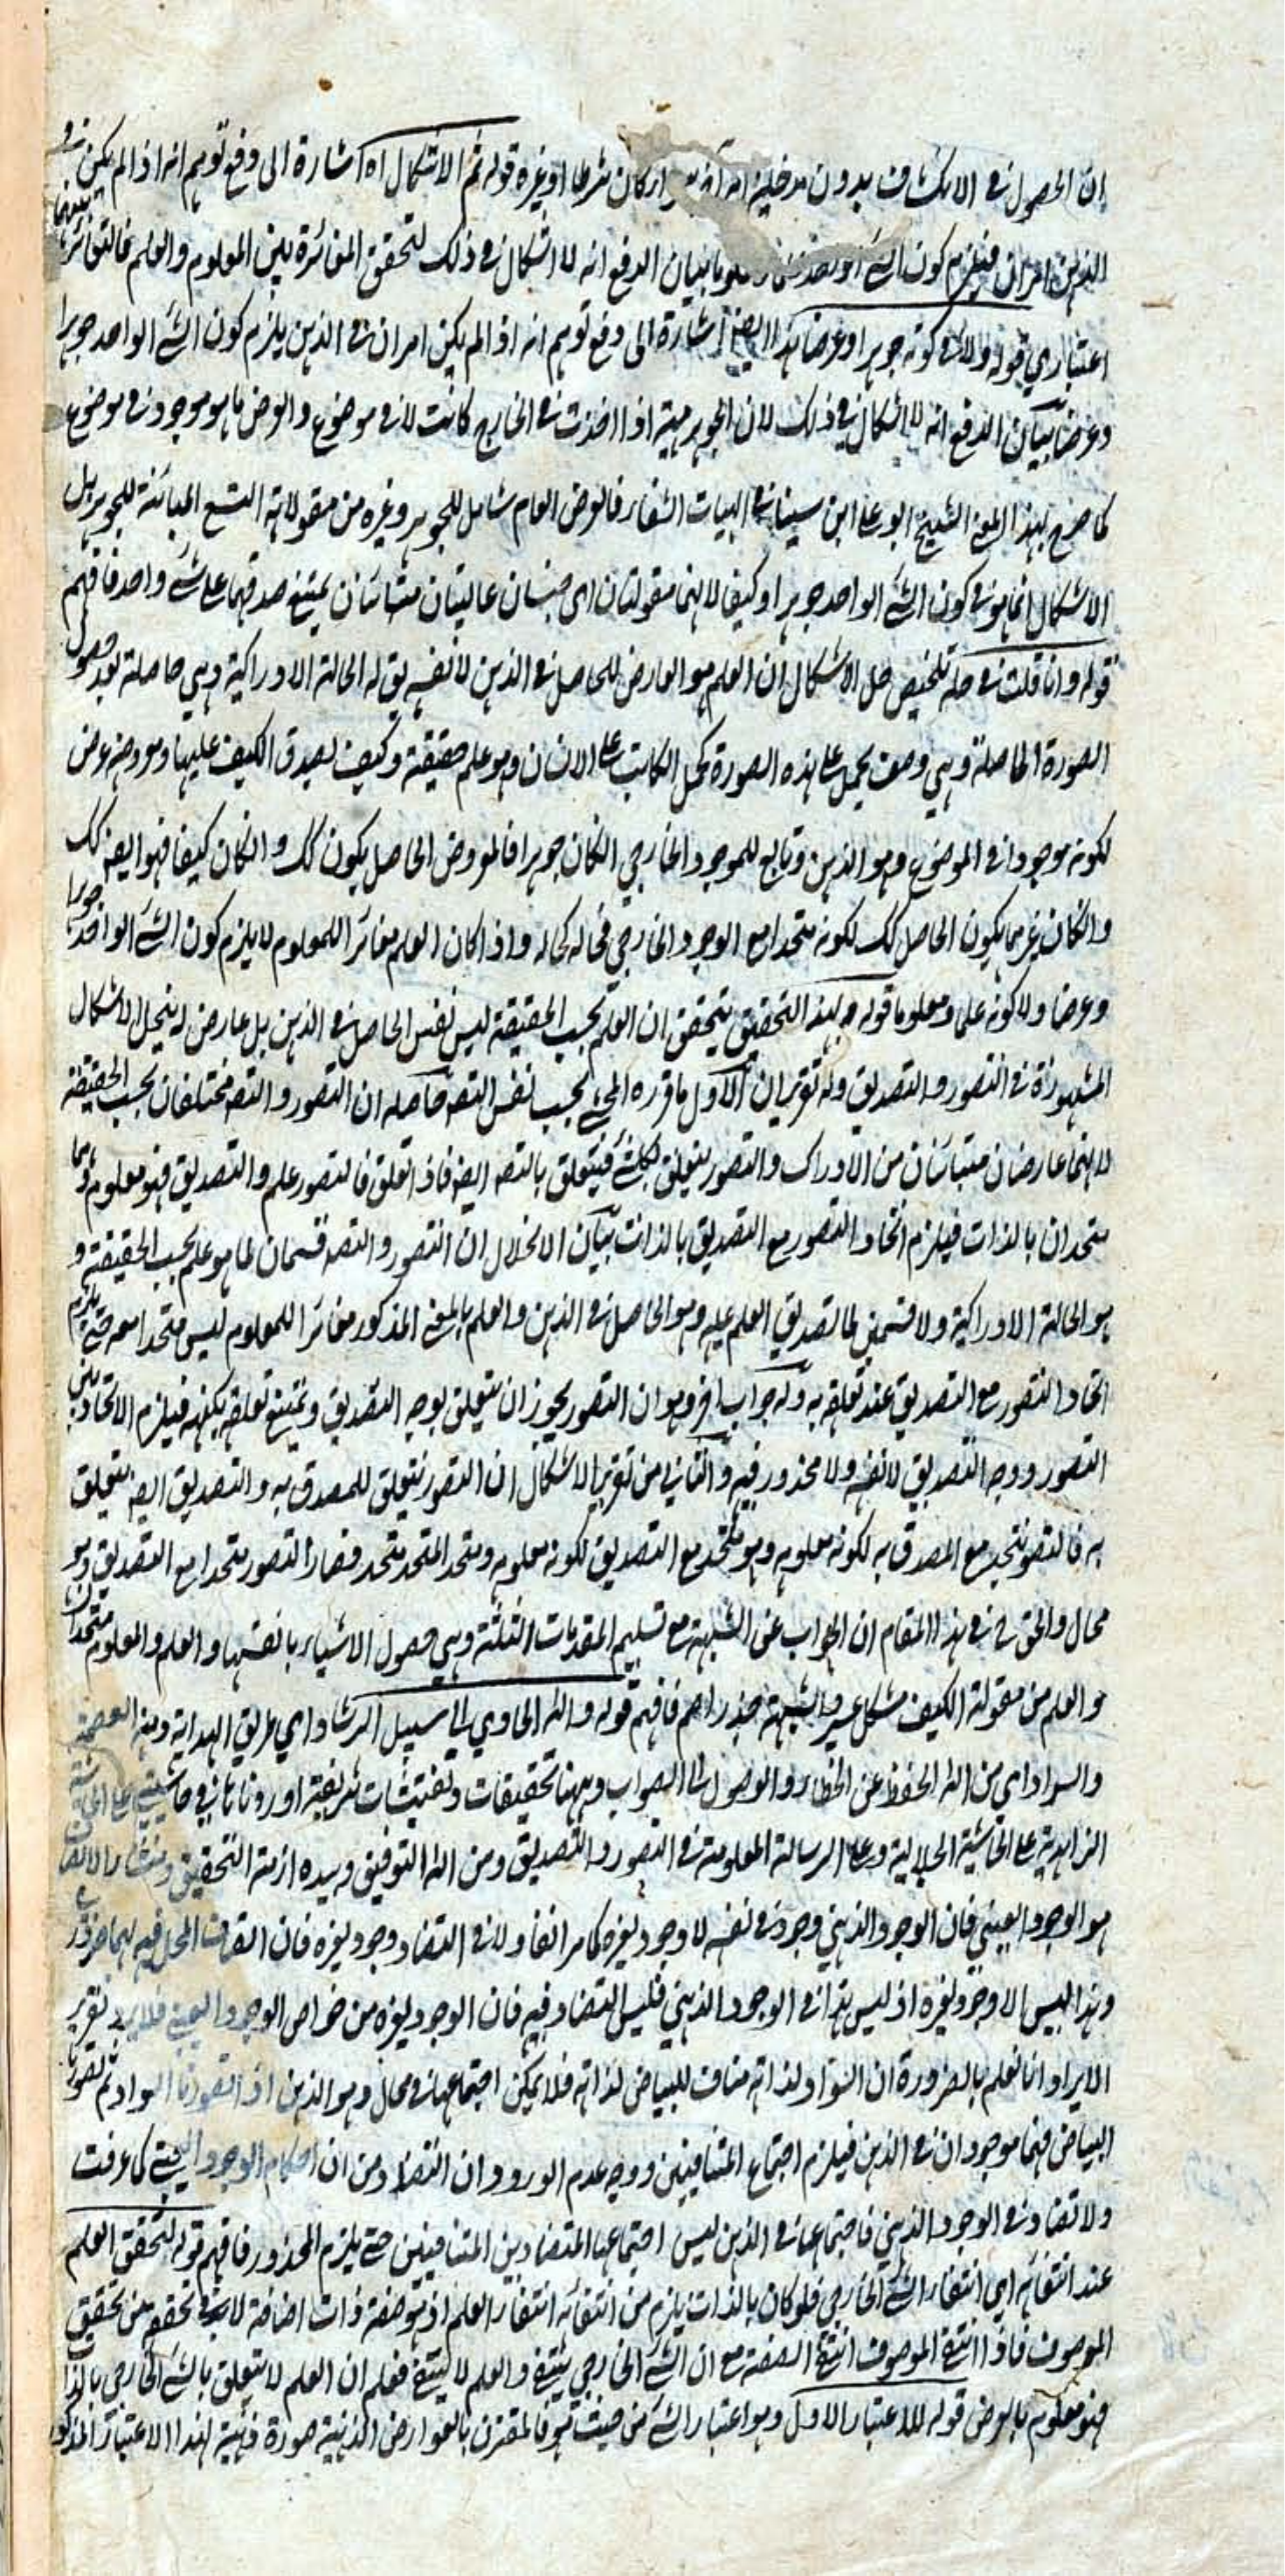 ان الحصول في الانكشاف بدون مدخلية كان شرطا او غيره قوله ثم الاشكال اه اشارة الى دفع توهم انه اذا لم يكن في
الذهن امران فيلزم كون الشئ بيان الدفع انه لا اشكال في ذلك لتحقق المغائرة بين المعلوم والعلم فالتغائر بينهما
اعتباري قوله ولا في كونه جوهرا وعرضا هذا ايضا اشارة الى دفع توهم انه اذا لم يكن امران في الذهن يلزم كون الشئ الواحد جوهرا
وعرضا بيان الدفع انه لا اشكال في ذلك لان الجوهر مهية اذا اخذت في الخارج كانت لا في موضوع والعرض ما هو موجود في موضوع
كما صرح بهذا المعنى الشيخ ابو على ابن سينا في الهيات الشفاء فالعرض العام شامل للجوهر وغيره من مقولاته التسع المبائنة للجوهر بل
الاشكال انما هو في كون الشئ الواحد جوهرا وكيفا لانهما مقولتان اى جنسان عاليتان متبائنان يمتنع صدقهما على شئ واحد فافهم
قوله وانا قلت في حله تلخيص حل الاشكال ان العلم هو العارض للحاصل في الذهن لا نفسه يق له الحالة الادراكية وهي حاصلة بعد حصول
الصورة الحاصلة وهي وصف يحمل على هذه الصورة كحمل الكاتب على الانسان وهو علم حقيقة وكيف لصدق الكيف عليها ومعروضه عرض
لكونه موجودا في الموضوع وهو الذهن وتابع للموجود الخارجي انكان جوهرا فالمعروض الحاصل يكون كك وانكان كيفا فهو ايضه كك
وانكان غيرهما يكون الحاصل كك لكونه متحدا مع الوجود الخارجي فحاله كحاله واذا كان العلم مغائرا للمعلوم لا يلزم كون الشئ الواحد جوهرا
وعرضا ولا كونه علما ومعلوما قوله وبهذا التحقيق يتحقق ان العلم بحسب الحقيقة ليس نفس الحاصل في الذهن بل عارض له ينحل الاشكال
المشهورة في التصور والتصديق وله تقريران الاول ما قرره المحشي بحسب نفس التصه حاصله ان التصور والتصه مختلفان بحسب الحقيقة
لانهما عارضان متبائنان من الادراك والتصور يتعلق بكل شئ فيتعلق بالتصه ايضه فاذا تعلق فالتصور علم والتصديق فهو معلوم وهما
متحدان بالذات فيلزم اتحاد التصور مع التصديق بالذات بيان الانحلال ان التصور والتصه قسمان لما هو علم بحسب الحقيقة و
هو الحالة الادراكية ولا قسمين لما تصديق العلم عليه وهو الحاصل في الذهن والعلم بالمعنى المذكور مغائر للمعلوم ليس متحدا معه حتى يلزم
اتحاد التصور مع التصديق عند تعلقه به وله جواب اخر وهو ان التصور يجوز ان يتعلق بوجه التصديق ويمتنع تعلقه بكنهه فيلزم الاتحاد بين
التصور ووجه التصديق لا نفسه ولا محذور فيه والثاني من تقرير الاشكال ان التصور يتعلق للمصدق به والتصديق ايضه يتعلق
به فالتصور متحد مع المصدق به لكونه معلومه وهو متحد مع التصديق لكونه معلومه ومتحد المتحد متحد فصار التصور متحدا مع التصديق وهو
محال والحق في هذا المقام ان الجواب عن الشبهة مع تسليم المقدمات الثلثة وهي حصول الاشياء بانفسها والعلم والمعلوم متحدان
والعلم من مقولة الكيف مشكل عسير والشبهة جذر اصم فافهم قوله والله الهادي الى سبيل الرشاد اي طريق الهداية ومنه العصمة
والسداد اى من الله الحفظ عن الخطاء والوصول الى الصواب وههنا تحقيقات وتفتيشات شريفة اوردناها في حاشيتي على الحاشية
الزاهدية على الحاشية الجلالية وعلى الرسالة المعلومة في التصور والتصديق ومن الله التوفيق وبيده ازمة التحقيق ومنشاء الاتصاف
هو الوجود العيني فان الوجود الذهني وجود في نفسه لا وجود لغيره كما مر انفا ولا في التضاد وجود لغيره فان اتصاف المحل فيه بهما ضرورى
وهذا ليس الا وجود لغيره اذ ليس هذا في الوجود الذهني فليس التضاد فيه فان الوجود لغيره من خواص الوجود العيني فلا يرد تقرير
الايراد انا نعلم بالضرورة ان السواد لذاته مناف للبياض لذاته فلا يمكن اجتماعهما في محال وهو الذهن اذا تصورنا السواد ثم تصورنا
البياض فهما موجودان في الذهن فيلزم اجتماع المتنافيين ووجه عدم الورود ان التضاد من احكام الوجود العيني كما عرفت
ولا تضاد في الوجود الذهني فاجتماعهما في الذهن ليس اجتماعها المتضادين المتنافيين حتى يلزم المحذور فافهم قوله لتحقق العلم
عند انتفائه اي انتفاء الشئ الخارجي فلو كان بالذات يلزم من انتفائه انتفاء العلم اذ هو صفة ذات اضافة لا بد في تحققه من تحقق
الموصوف فاذا انتفى الموصوف انتفى الصفة مع ان الشئ الخارجي ينتفي والعلم لا ينتفي فعلم ان العلم لا يتعلق بالشئ الخارجي بالذات
فهو معلوم بالعرض قوله للاعتبار الاول وهو اعتبار الشئ من حيث هو فالمقترن بالعوارض الذهنية صورة ذهنية لهذا الاعتبار المذكور